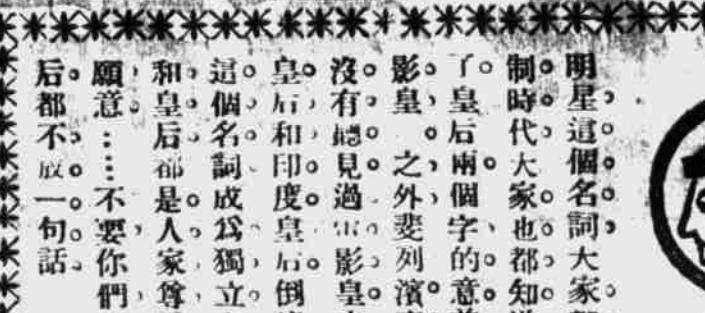 明星這個名詞大家
制時代大家也都知道
了皇后兩個字的意
影皇 之外斐列濱
沒有聽見過電影皇
皇后和印度皇后倒
這個名詞成爲獨立
和皇后都是人家尊
願意……不要你們
后都不放一句話